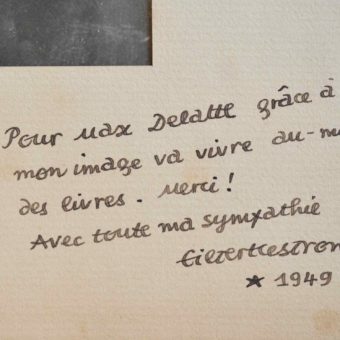 Pour Max Delatte grâce à
mon image va vivre au-m
des livres. Merci !
Avec toute ma sympathie
★ 1949